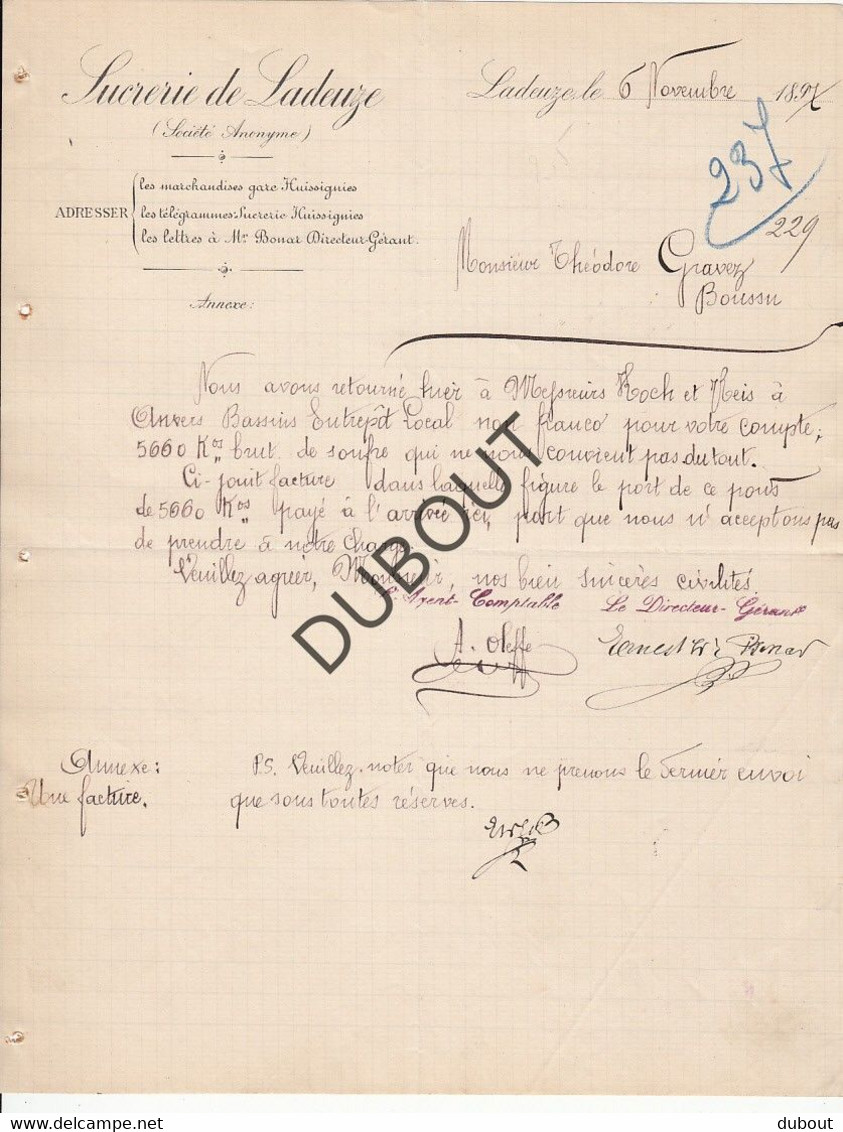 Sucrerie de Ladeuze
(Société Anonyme)
Ladeuze, le 6 Novembre 1897
237
229
ADRESSER
les marchandises gare Huissignies
les télégrammes-Sucrerie Huissignies
les lettres à Mr Bonar Directeur-Gérant.
Annexe:
Monsieur Théodore Gravez
Boussu
Nous avons retourné hier à Messieurs Koch et Reis à
Anvers Bassins Entrepôt Local non franco pour votre compte,
5660 Kos brut de soufre qui ne nous convient pas du tout.
Ci-joint facture dans laquelle figure le port de ce poids
de 5660 Kos payé à l'arrivée ici, port que nous n'acceptons pas
de prendre à notre charge
Veuillez agréer, Monsieur, nos bien sincères civilités
L'Agent-Comptable Le Directeur-Gérant
A. Oleffe Ernest Bonar
Annexe:
Une facture.
P.S. Veuillez noter que nous ne prenons le dernier envoi
que sous toutes réserves.
DUBOUT
delcampe.net
dubout